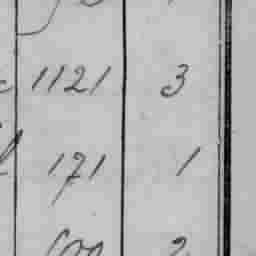 1121 3
171 1
600 2